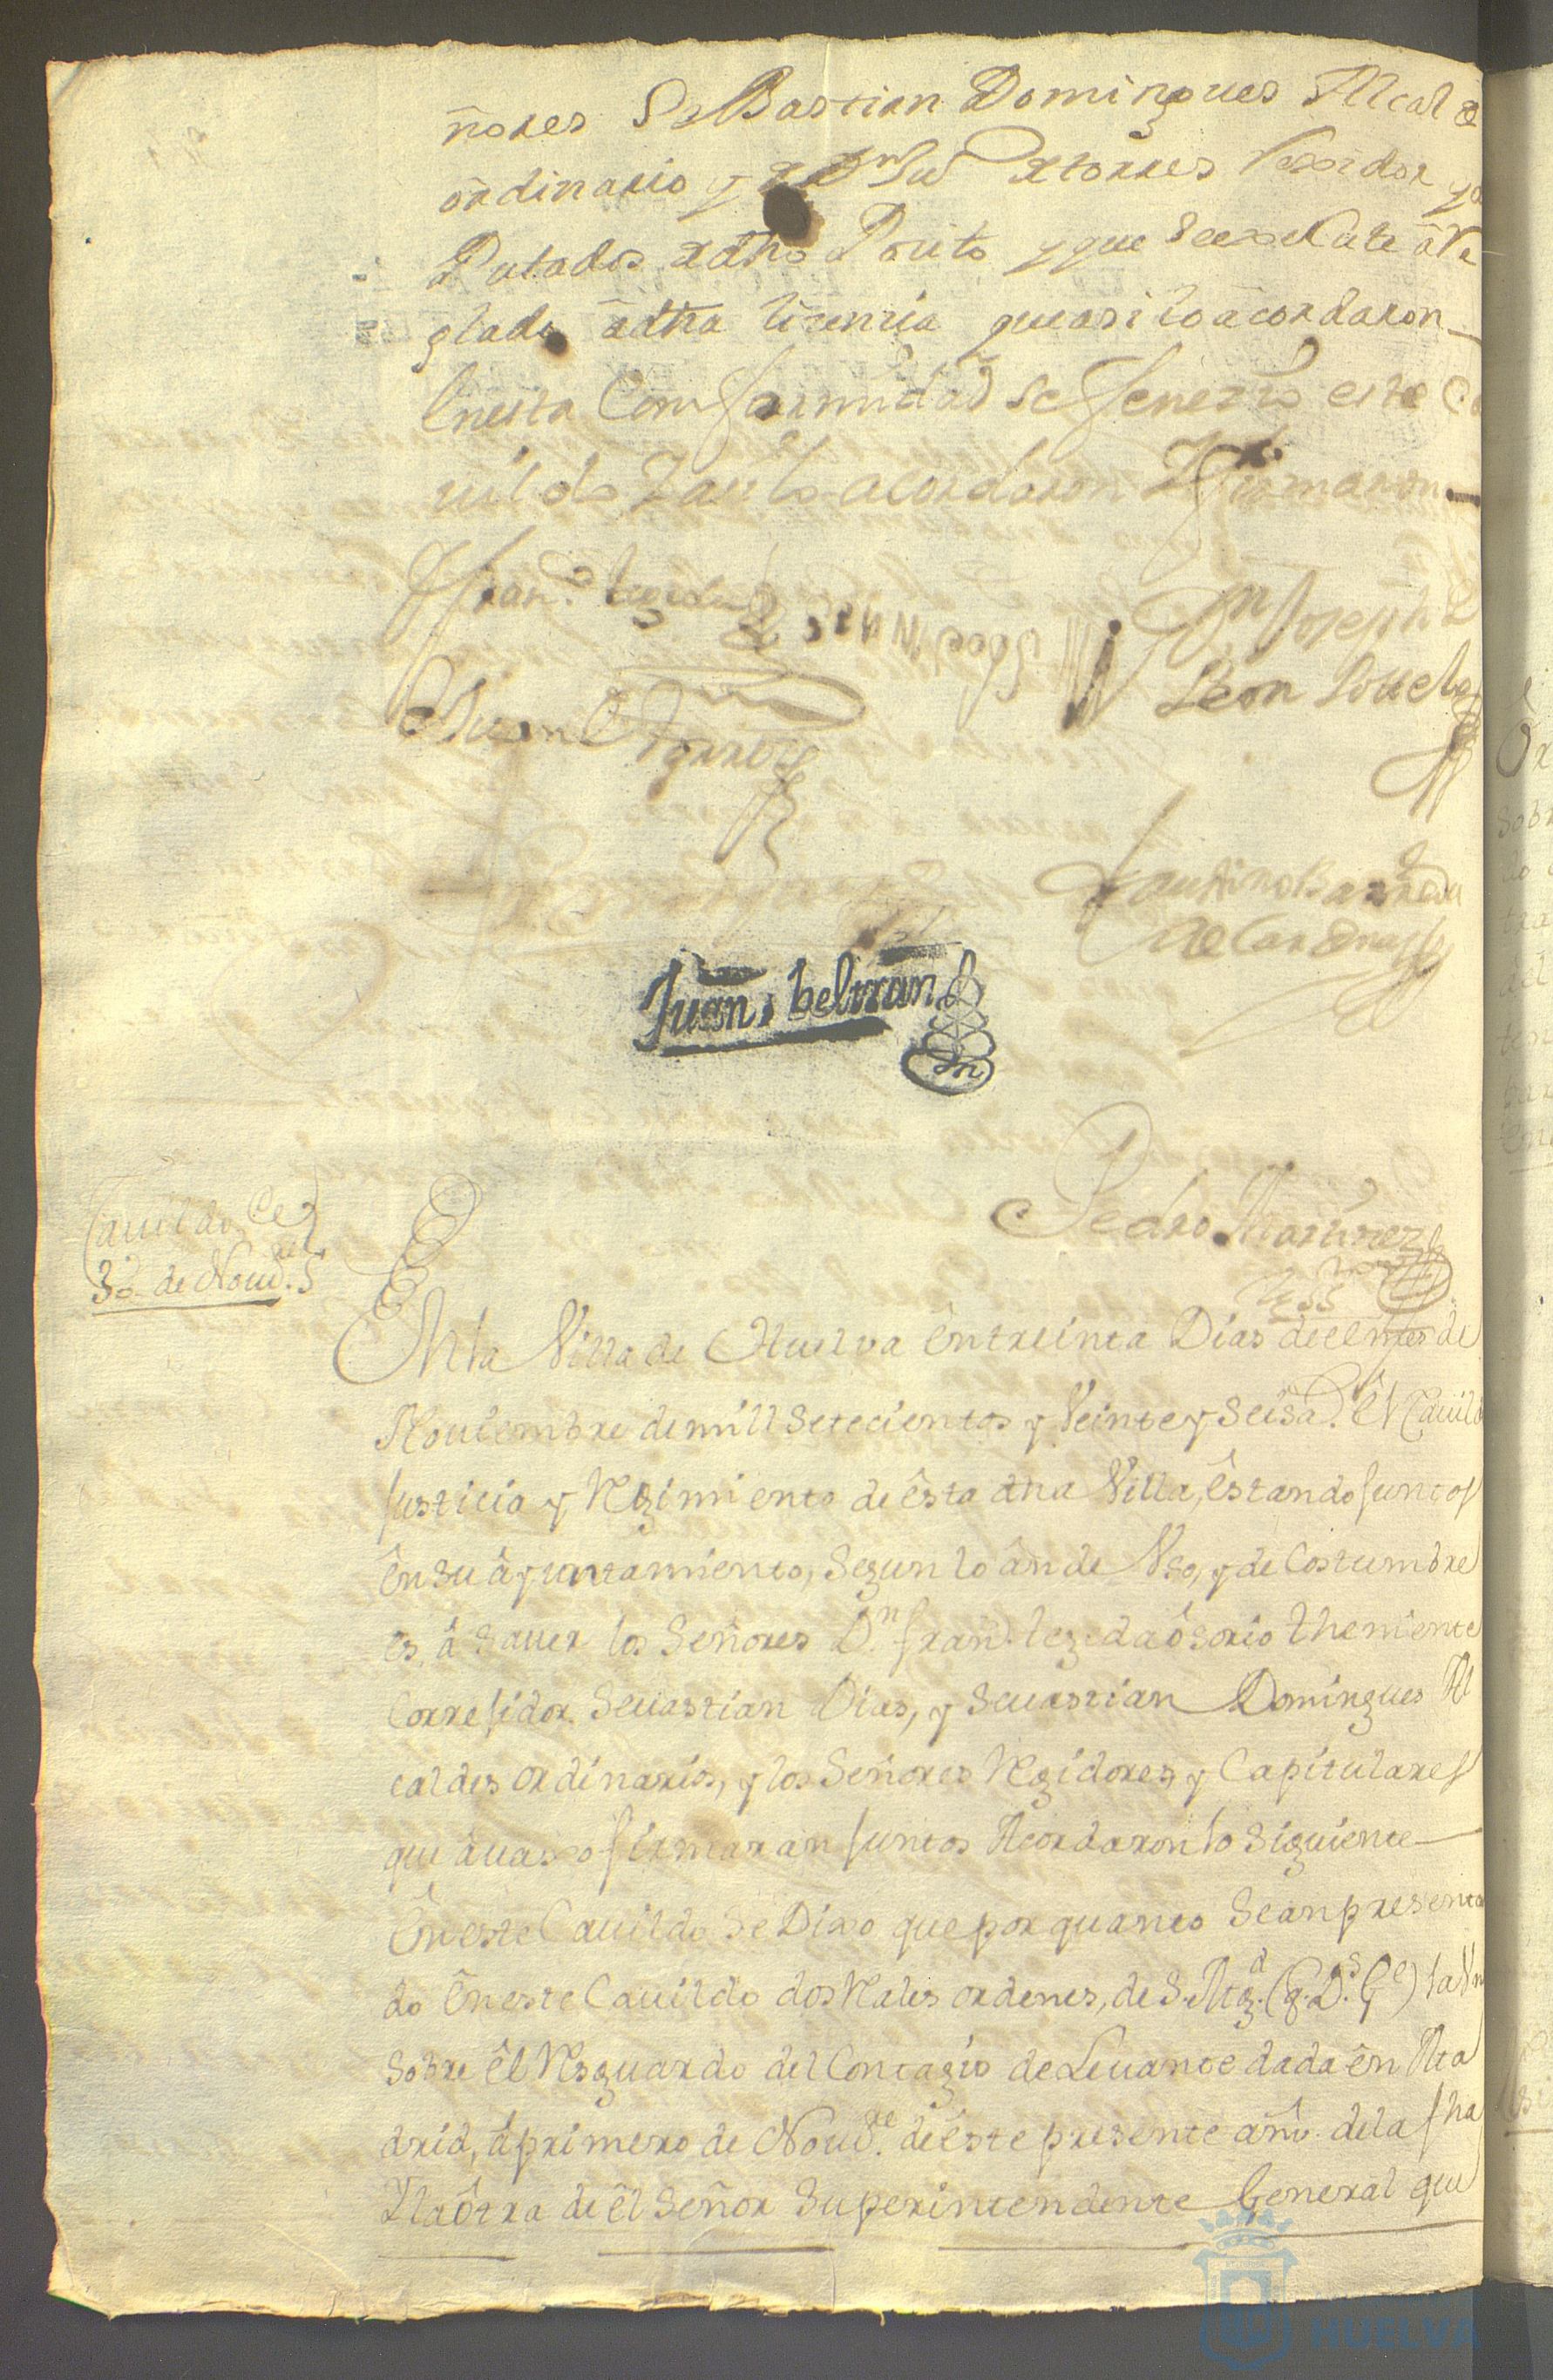 ñores SeBastian Domingues Alcalde
ordinario y Dn Juº de torres Rexidor y
Putados de dho Pocito y que seexecute aRe
glado a dha licencia que asi lo acordaron
Enesta Comformidad se fenezio este Ca
uildo Y asi lo acordaron Y firmaron
Fran.co Uzeda
Dn Joseph de
Leon
Juan de torres
Faustino Barreda
de Cardenas
Juan, beltran
Pedro Martinez
Cauildo de
30 de Nou.re
Enla Villa de Huelva Entreinta Dias de el mes de
Nouiembre de mill setecientos y Veinte y seis a.s el Cauildo
Justicia y Reximiento de esta dha Villa, estando Juntos
en su ayuntamiento, segun lo an de Vso, y de Costumbre
es, a sauer los Señores D.n fran.co Uzeda osorio theniente
Correxidor. Seuastian Dias, y Seuastian Domingues Al
caldes ordinarios, y los Señores Regidores y Capitulares
que auaxo firmaran Juntos Acordaron lo siguiente
En este Cauildo se Dixo que por quanto se an presenta
do En este Cauildo dos Rales ordenes, de S. Mag.d (q. D.s G.e) la Vna
sobre el Resguardo del Contagio de Leuante dada en Ma
drid, a primero de Nou.re de este presente año. de la fha
Y la otra de el Señor Superintendente General que
HUELVA